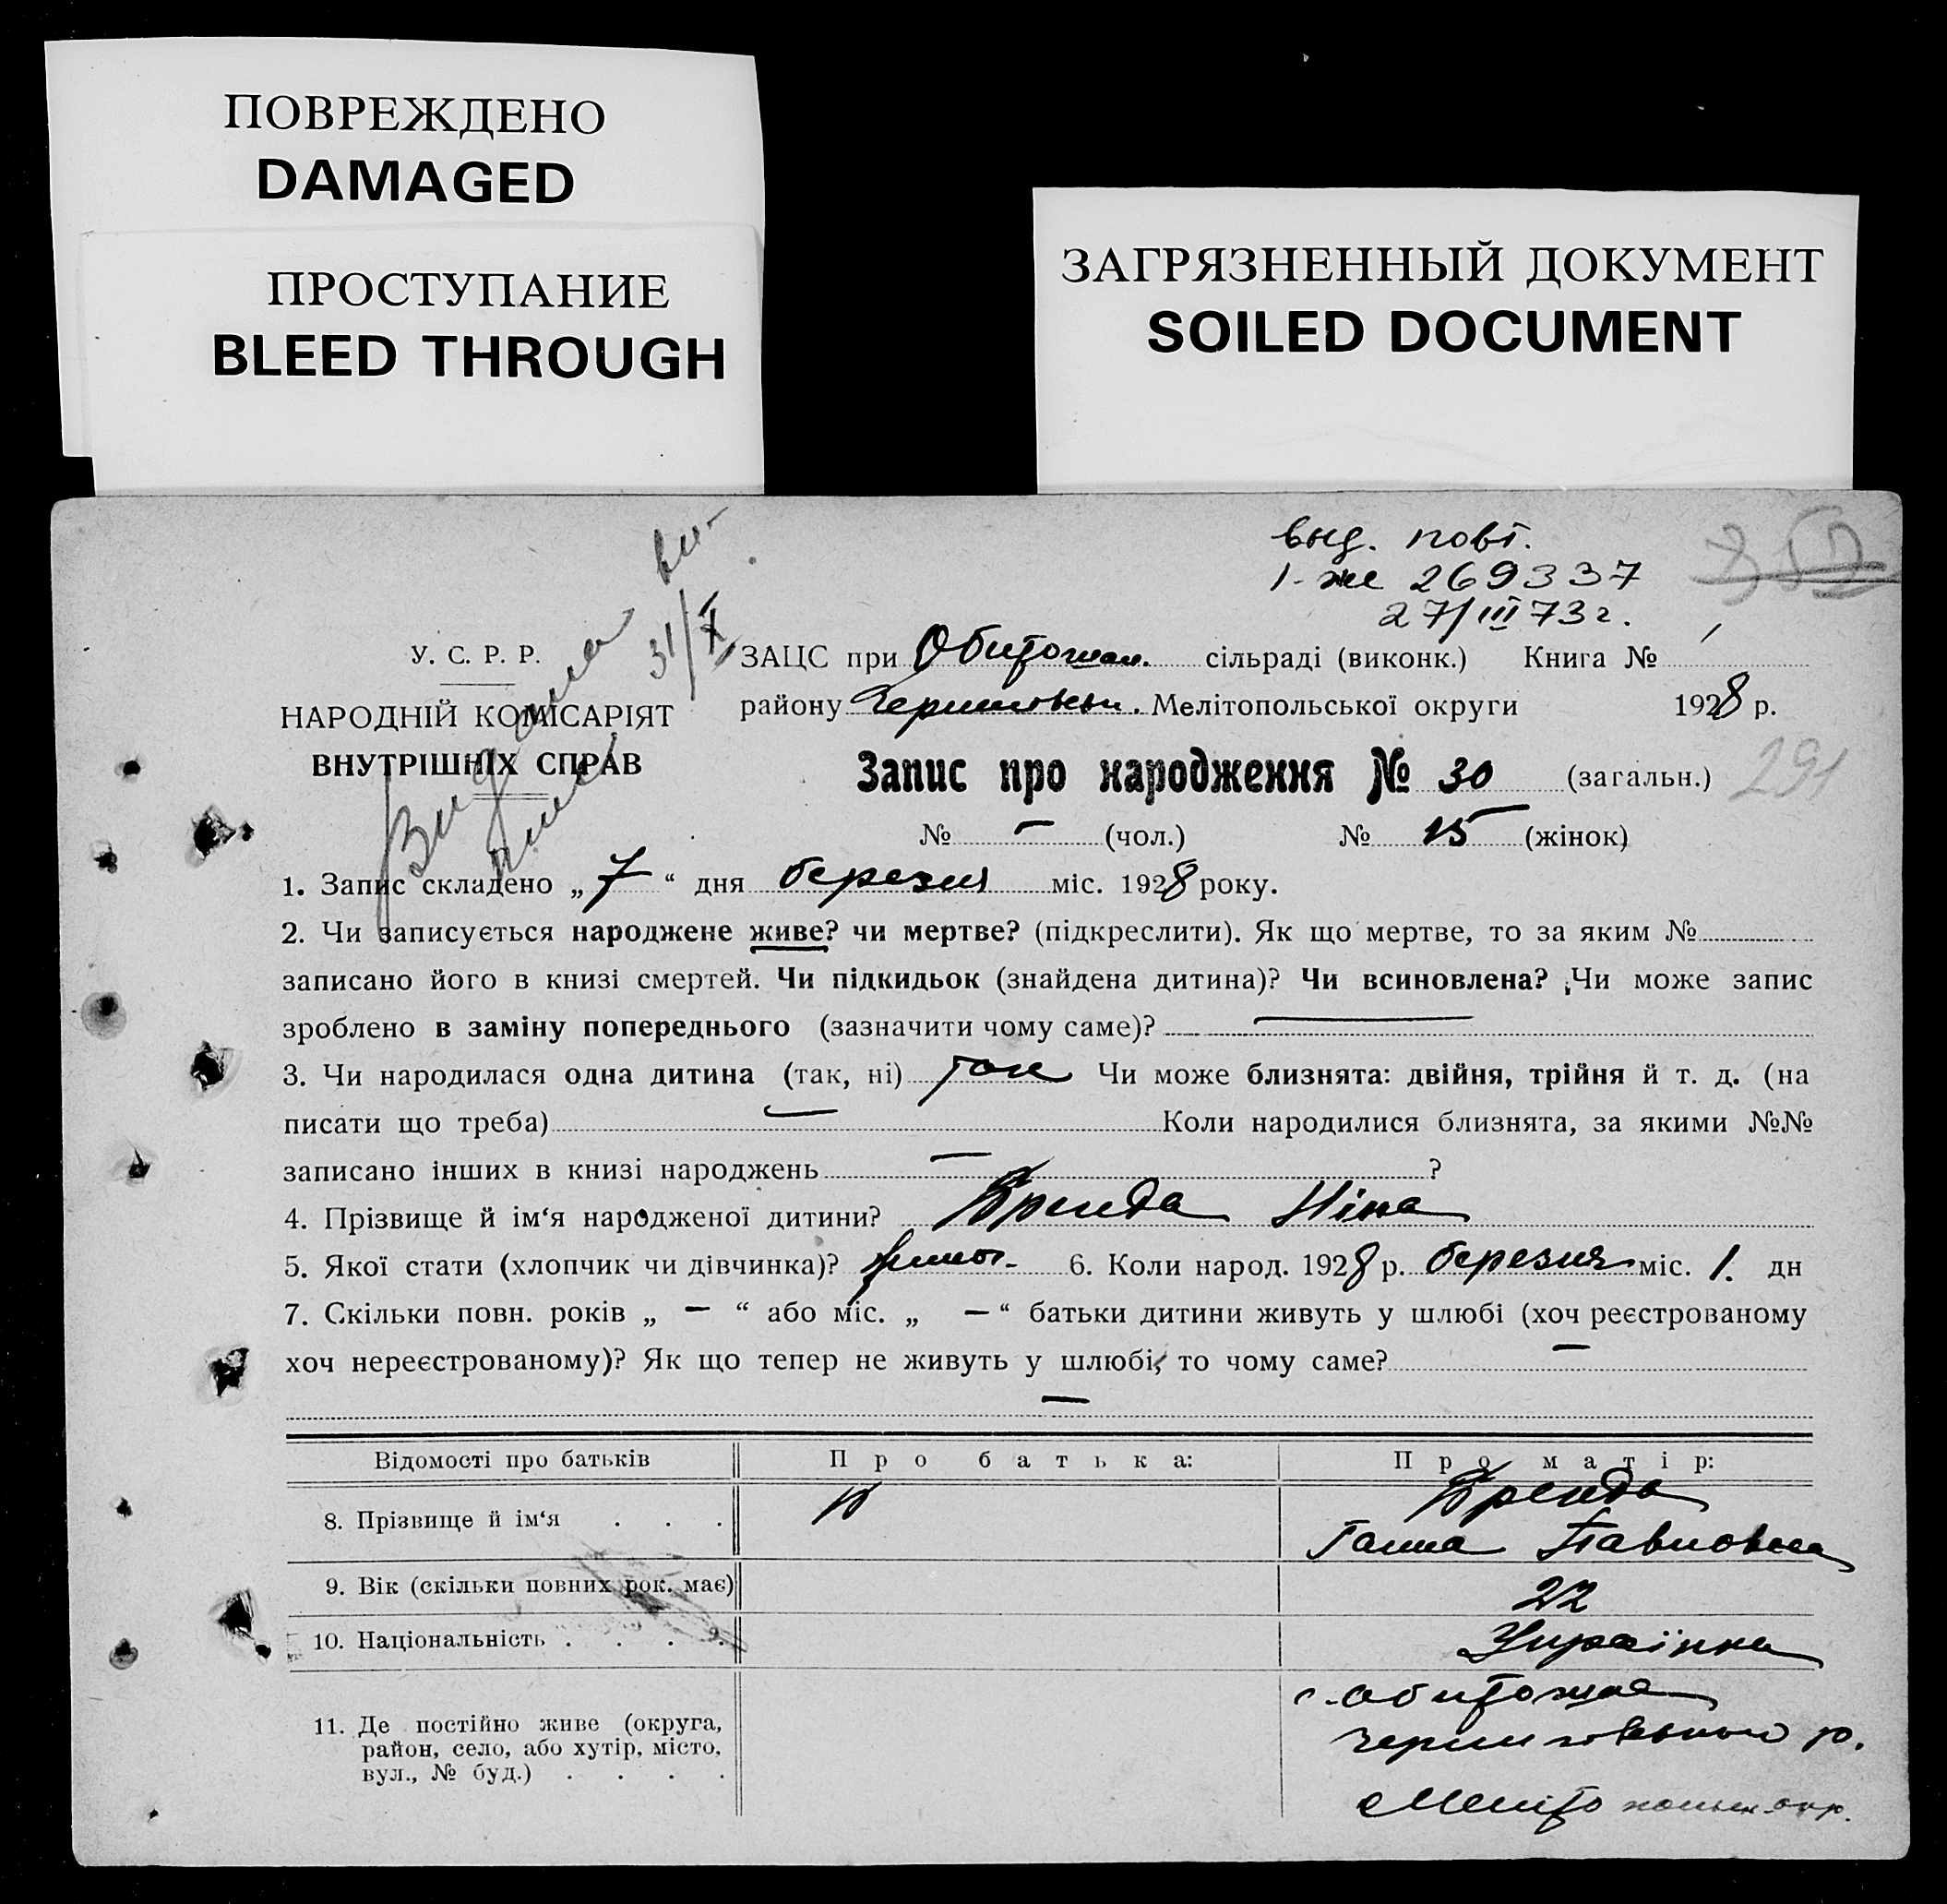 ПОВРЕЖДЕНО
DAMAGED
ПРОСТУПАНИЕ
BLEED THROUGH
ЗАГРЯЗНЕННЫЙ ДОКУМЕНТ
SOILED DOCUMENT
выд. повт.
269337
27/III 73 г.
31/X
У. С. Р. Р.
НАРОДНІЙ КОМІСАРІЯТ
ВНУТРІШНІХ СПРАВ
ЗАЦС при Обиточан. сільраді (виконк.) Книга №
району Чернигівськ. Мелітопольської округи 1928 р.
Запис про народження № 30 (загальн.) 291
№ — (чол.) № 15 (жінок)
1. Запис складено „ 7 “ дня березня міс. 1928 року.
2. Чи записується народжене живе? чи мертве? (підкреслити). Як що мертве, то за яким №
записано його в книзі смертей. Чи підкидьок (знайдена дитина)? Чи всиновлена? Чи може запис
зроблено в заміну попереднього (зазначити чому саме)? —
3. Чи народилася одна дитина (так, ні) так Чи може близнята: двійня, трійня й т. д. (на
писати що треба) — Коли народилися близнята, за якими №№
записано інших в книзі народжень — ?
4. Прізвище й ім‘я народженої дитини? Ніна
5. Якої стати (хлопчик чи дівчинка)? жиноч. 6. Коли народ. 1928 р. березня міс. 1. дн
7. Скільки повн. років „ — “ або міс. „ — “ батьки дитини живуть у шлюбі (хоч реєстрованому
хоч нереєстрованому)? Як що тепер не живуть у шлюбі, то чому саме? —
—
Відомості про батьків Про батька: Про матір:
8. Прізвище й ім‘я . . .
Ганна Павловна
9. Вік (скільки повних рок. має) 22
10. Національність . . . . Українка
11. Де постійно живе (округа,
район, село, або хутір, місто,
вул., № буд.) . . . .
с. Обиточна
Чернигівського р.
Мелітопольськ. окр.